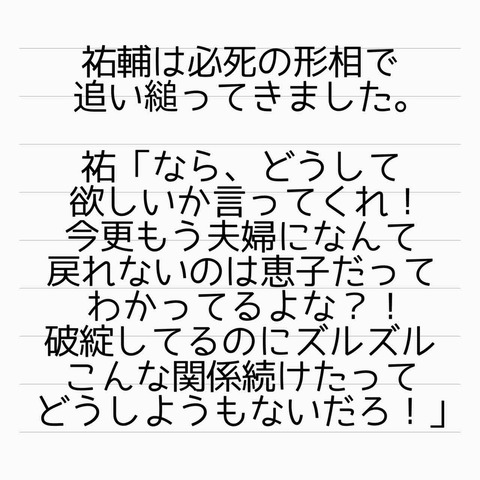 祐輔は必死の形相で
追い縋ってきました。
祐「なら、どうして
欲しいか言ってくれ！
今更もう夫婦になんて
戻れないのは恵子だって
わかってるよな？！
破綻してるのにズルズル
こんな関係続けたって
どうしようもないだろ！」